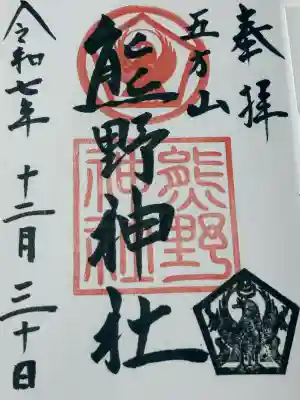 奉拝
五方山
熊野神社
熊野
神社
令和七年 十二月 三十日